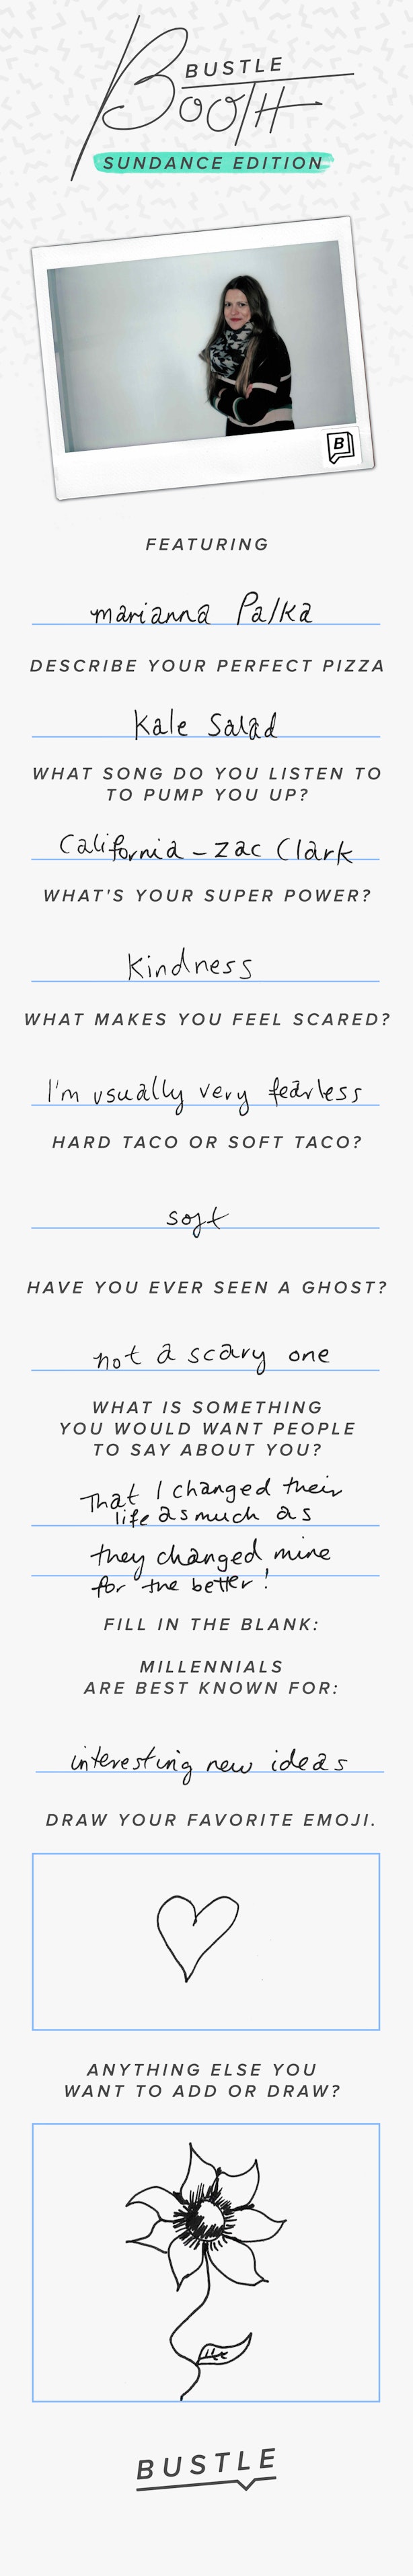 BUSTLE
BOOTH
SUNDANCE EDITION
B
FEATURING
marianna Palka
DESCRIBE YOUR PERFECT PIZZA
Kale Salad
WHAT SONG DO YOU LISTEN TO
TO PUMP YOU UP?
California - Zac Clark
WHAT'S YOUR SUPER POWER?
Kindness
WHAT MAKES YOU FEEL SCARED?
I'm usually very fearless
HARD TACO OR SOFT TACO?
soft
HAVE YOU EVER SEEN A GHOST?
not a scary one
WHAT IS SOMETHING
YOU WOULD WANT PEOPLE
TO SAY ABOUT YOU?
That I changed their
life as much as
they changed mine
for the better!
FILL IN THE BLANK:
MILLENNIALS
ARE BEST KNOWN FOR:
interesting new ideas
DRAW YOUR FAVORITE EMOJI.
ANYTHING ELSE YOU
WANT TO ADD OR DRAW?
BUSTLE